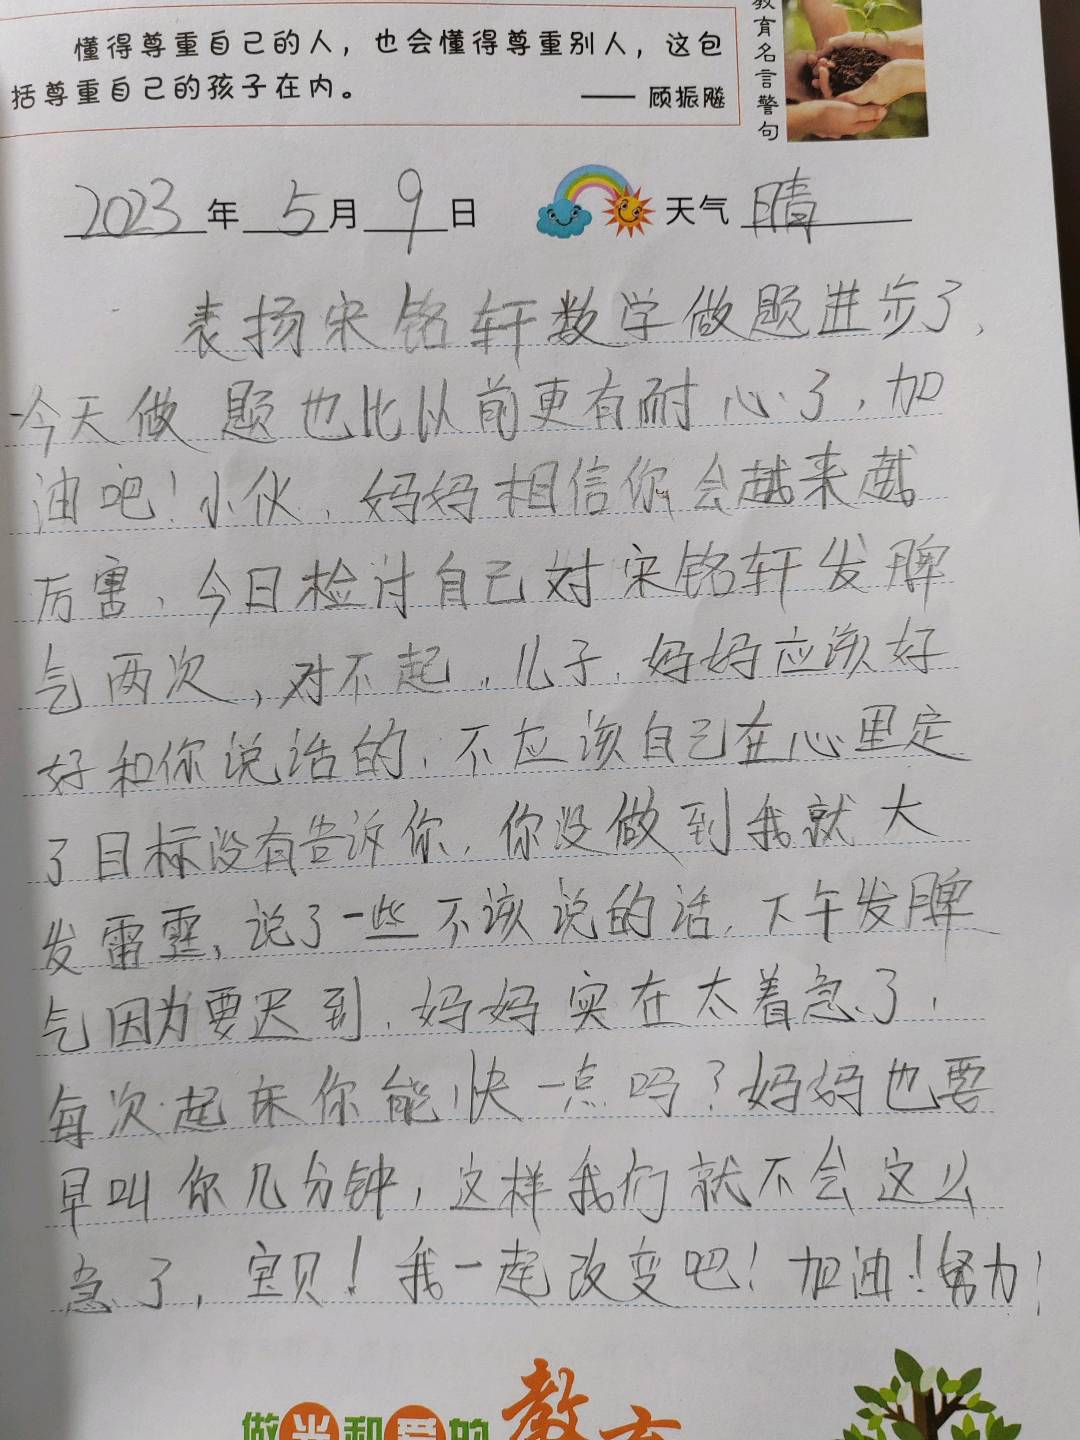 懂得尊重自己的人，也会懂得尊重别人，这包
括尊重自己的孩子在内。
—— 顾振飚
教育名言警句
2023年5月9日 天气 晴
表扬宋铭轩数学做题进步了，
今天做题也比以前更有耐心了，加
油吧！小伙，妈妈相信你会越来越
厉害，今日检讨自己对宋铭轩发脾
气两次，对不起，儿子，妈妈应该好
好和你说话的，不应该自己在心里定
了目标没有告诉你，你没做到我就大
发雷霆，说了一些不该说的话，下午发脾
气因为要迟到，妈妈实在太着急了，
每次起床你能快一点吗？妈妈也要
早叫你几分钟，这样我们就不会这么
急了，宝贝！我一起改变吧！加油！努力！
做光和爱的教育